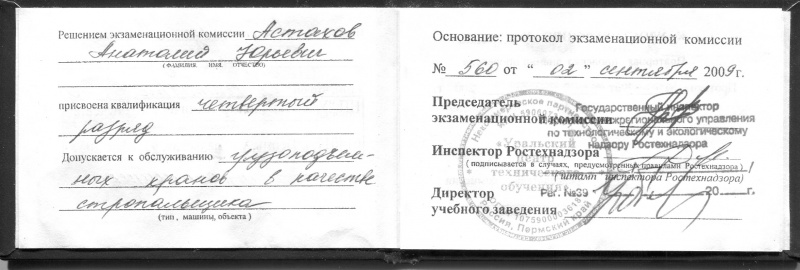 Решением экзаменационной комиссии Астахов
Анатолий Юрьевич
(фамилия имя, отчество)
присвоена квалификация четвертый
разряд
Допускается к обслуживанию грузоподъем-
ных кранов в качестве
стропальщика
(тип, машины, объекта)
Основание: протокол экзаменационной комиссии
№ 560 от "02" сентября 2009г.
Председатель
экзаменационной комиссии
Государственный инспектор
межрегионального управления
по технологическому и экологическому
надзору Ростехнадзора
Инспектор Ростехнадзора
(подписывается в случаях, предусмотренных правилами Ростехнадзора)
(штамп инспектора Ростехнадзора)
Директор
учебного заведения
Рег. №39
20 г.
"Уральский
центр
технического
обучения"
Россия, Пермский край